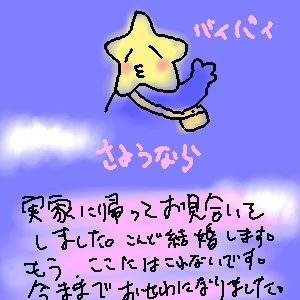 バイバイ
さようなら
実家に帰ってお見合いを
しました。こんど結婚します。
もう、ここにはこれないです。
今まで おせわになりました。